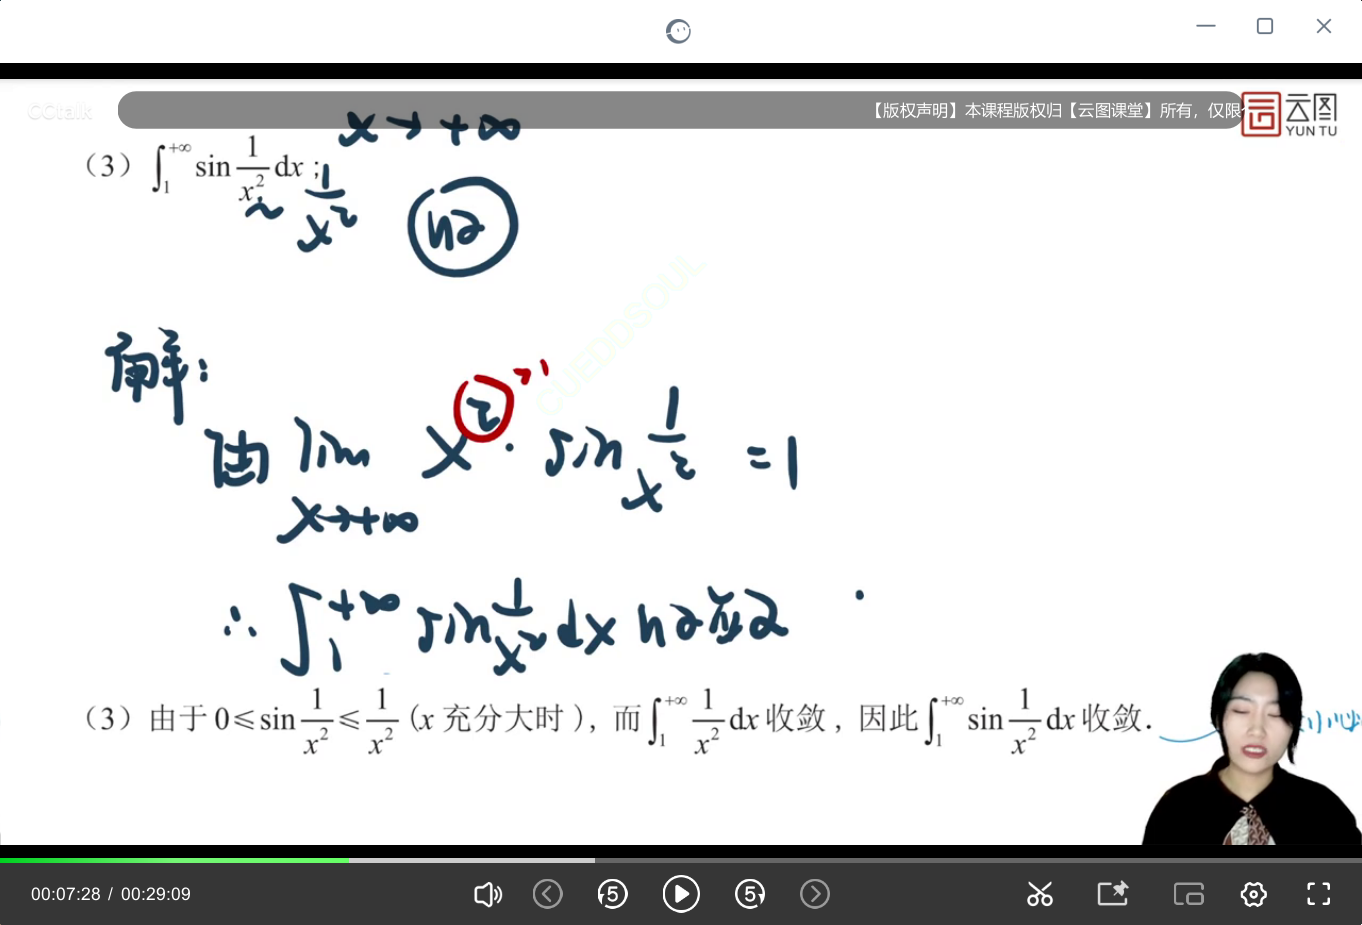 CCtalk
【版权声明】本课程版权归【云图课堂】所有，仅限
云图
YUN TU
x→+∞
（3）∫₁^{+∞} sin 1/x² dx ;
~ 1/x²
CUEDDSOUL
解：
由 lim x² · sin 1/x² = 1
>1
x→+∞
∴ ∫₁^{+∞} sin 1/x² dx
（3）由于 0≤sin 1/x² ≤ 1/x² (x 充分大时)，而∫₁^{+∞} 1/x² dx 收敛，因此∫₁^{+∞} sin 1/x² dx 收敛.
小心
00:07:28 / 00:29:09
5
5